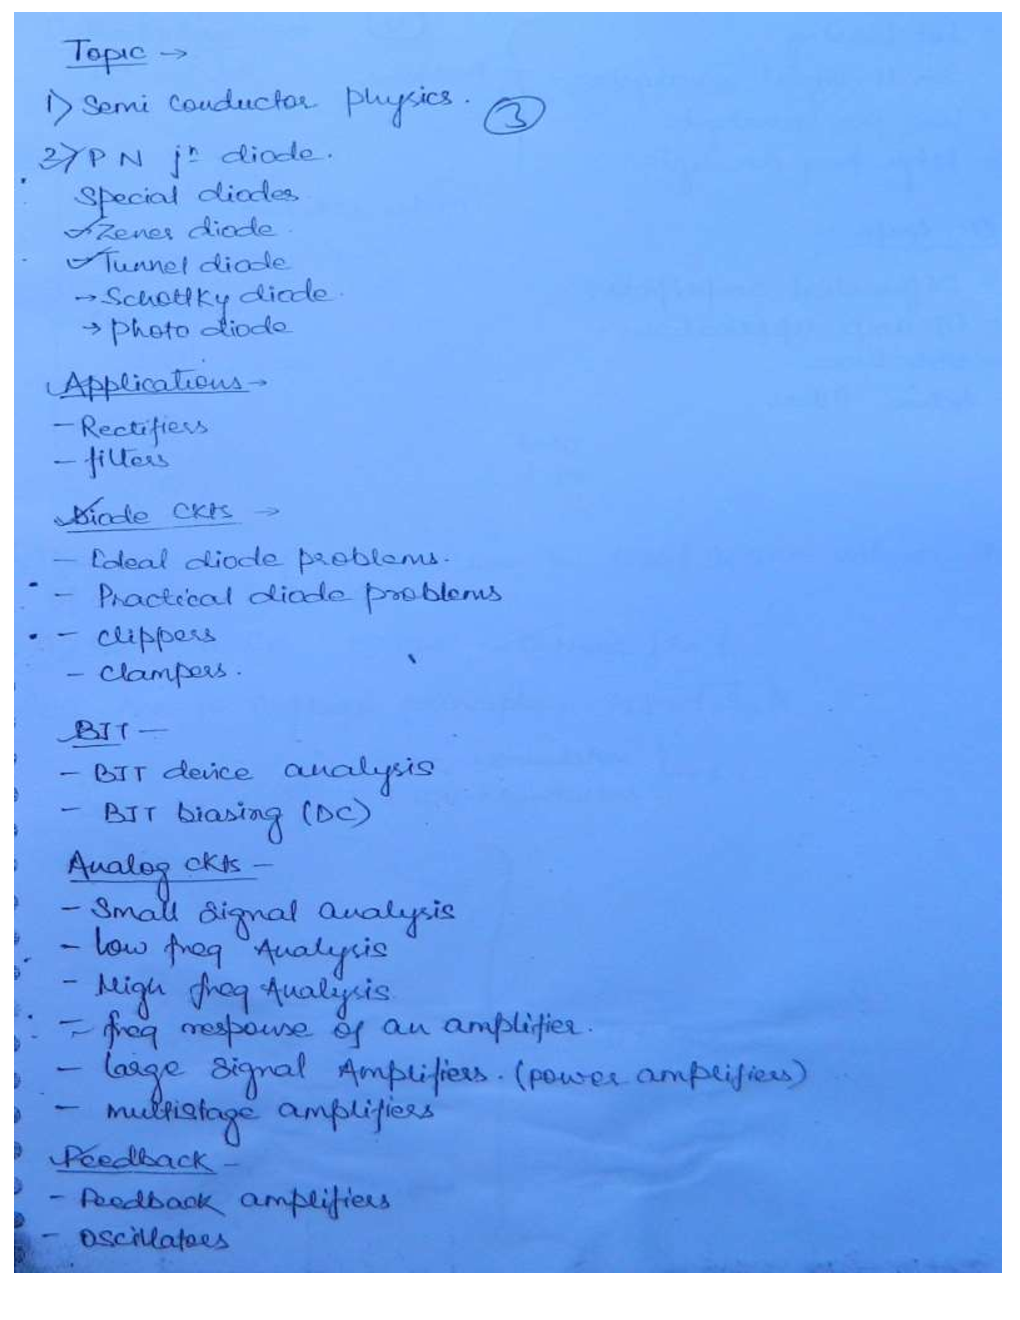 Topic →
1) Semi conductor physics.
3
2) P N jⁿ diode.
Special diodes
Zener diode
Tunnel diode
→ Schottky diode.
→ Photo diode
Applications →
- Rectifiers
- filters
Diode ckts →
- Ideal diode problems.
- Practical diode problems
- clippers
- Clampers.
BJT -
- BJT device analysis
- BJT biasing (DC)
Analog ckts -
- Small signal analysis
- low freq Analysis
- High freq Analysis
- freq response of an amplifier.
- large signal Amplifiers. (power amplifiers)
- multistage amplifiers
Feedback -
- Feedback amplifiers
- oscillators